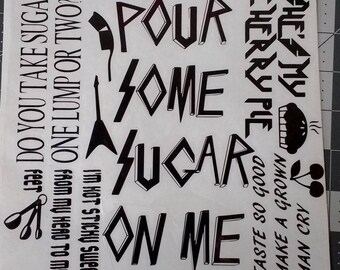 DO YOU TAKE SUGA
ONE LUMP OR TWO?
POUR
SOME
SUGAR
ON ME
I'M HOT STICKY SWEE
FROM MY HEAD TO M
FEET
HE'S MY
CHERRY PIE
TASTE SO GOOD
MAKE A GROWN
MAN CRY